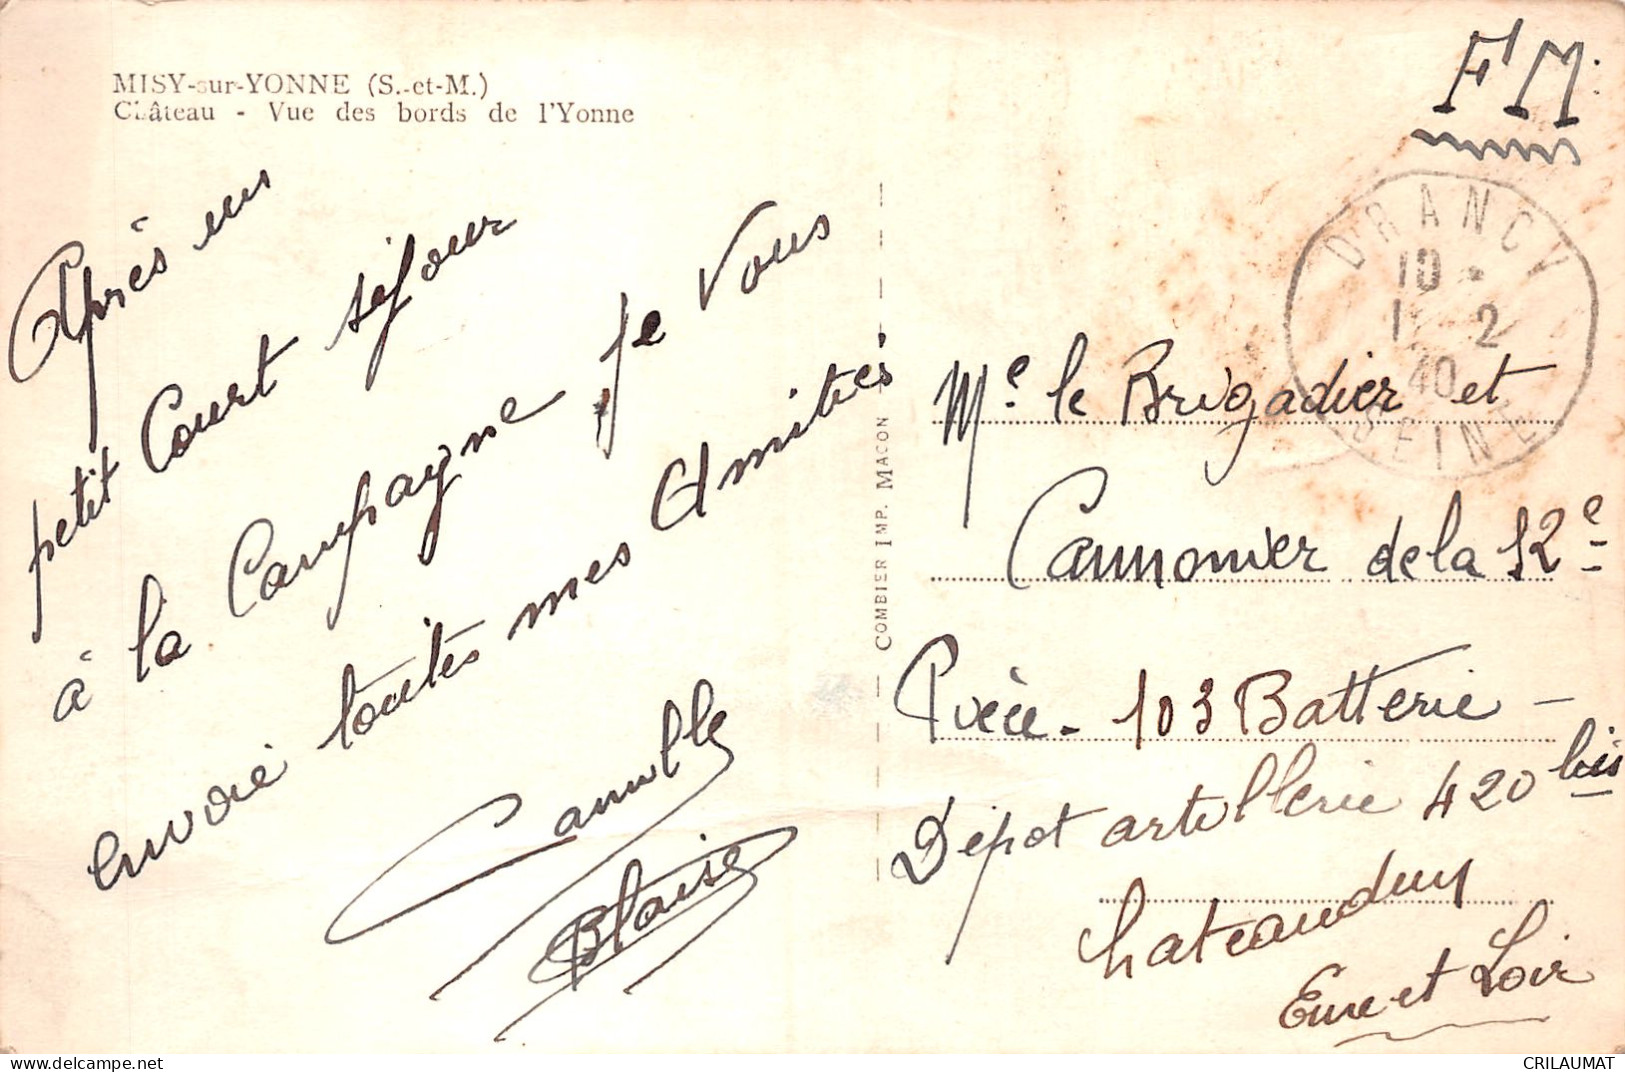 MISY-sur-YONNE (S.-et-M.)
Château - Vue des bords de l'Yonne
Après un
petit Court séjour
à la Campagne je vous
envoie toutes mes Amitiés
Camille
Blaise
COMBIER IMP. MACON
FM
DRANCY
10 *
1 - 2
40
SEINE
Mr le Brigadier et
Cannonier de la 12e
Pièce - 103 Batterie -
Dépot artillerie 420 bis
Chateaudun
Eure et Loir
delcampe.net
CRILAUMAT